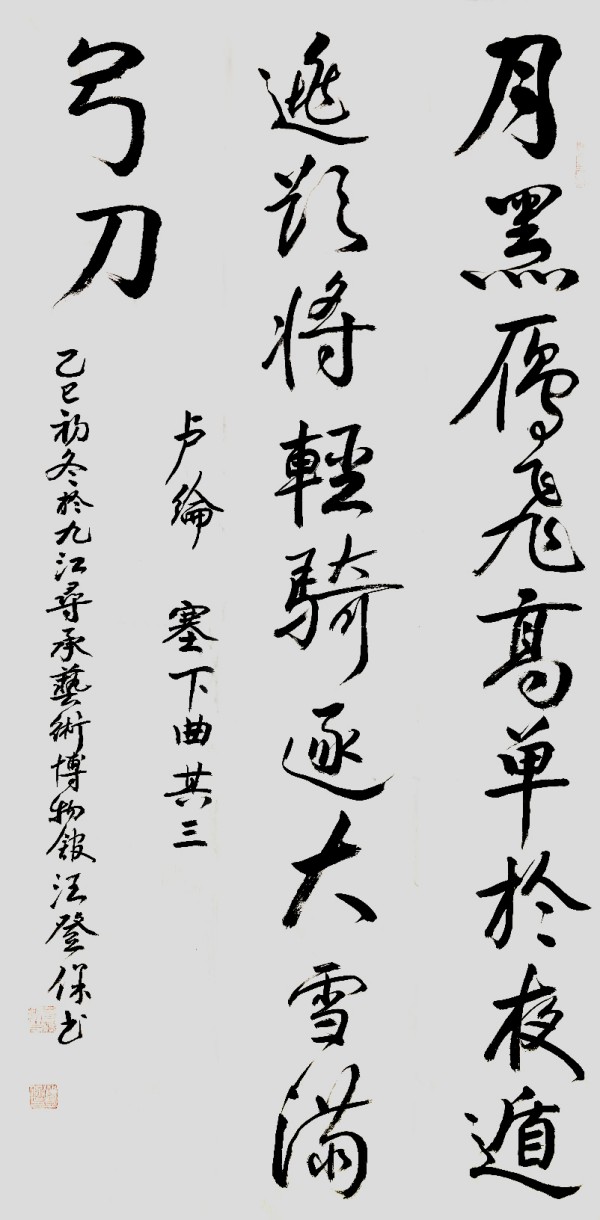 月黑雁飛高单於夜遁
逃欲將輕騎逐大雪滿
弓刀
卢綸 塞下曲其三
乙巳初冬於九江尋承藝術博物館汪登保书